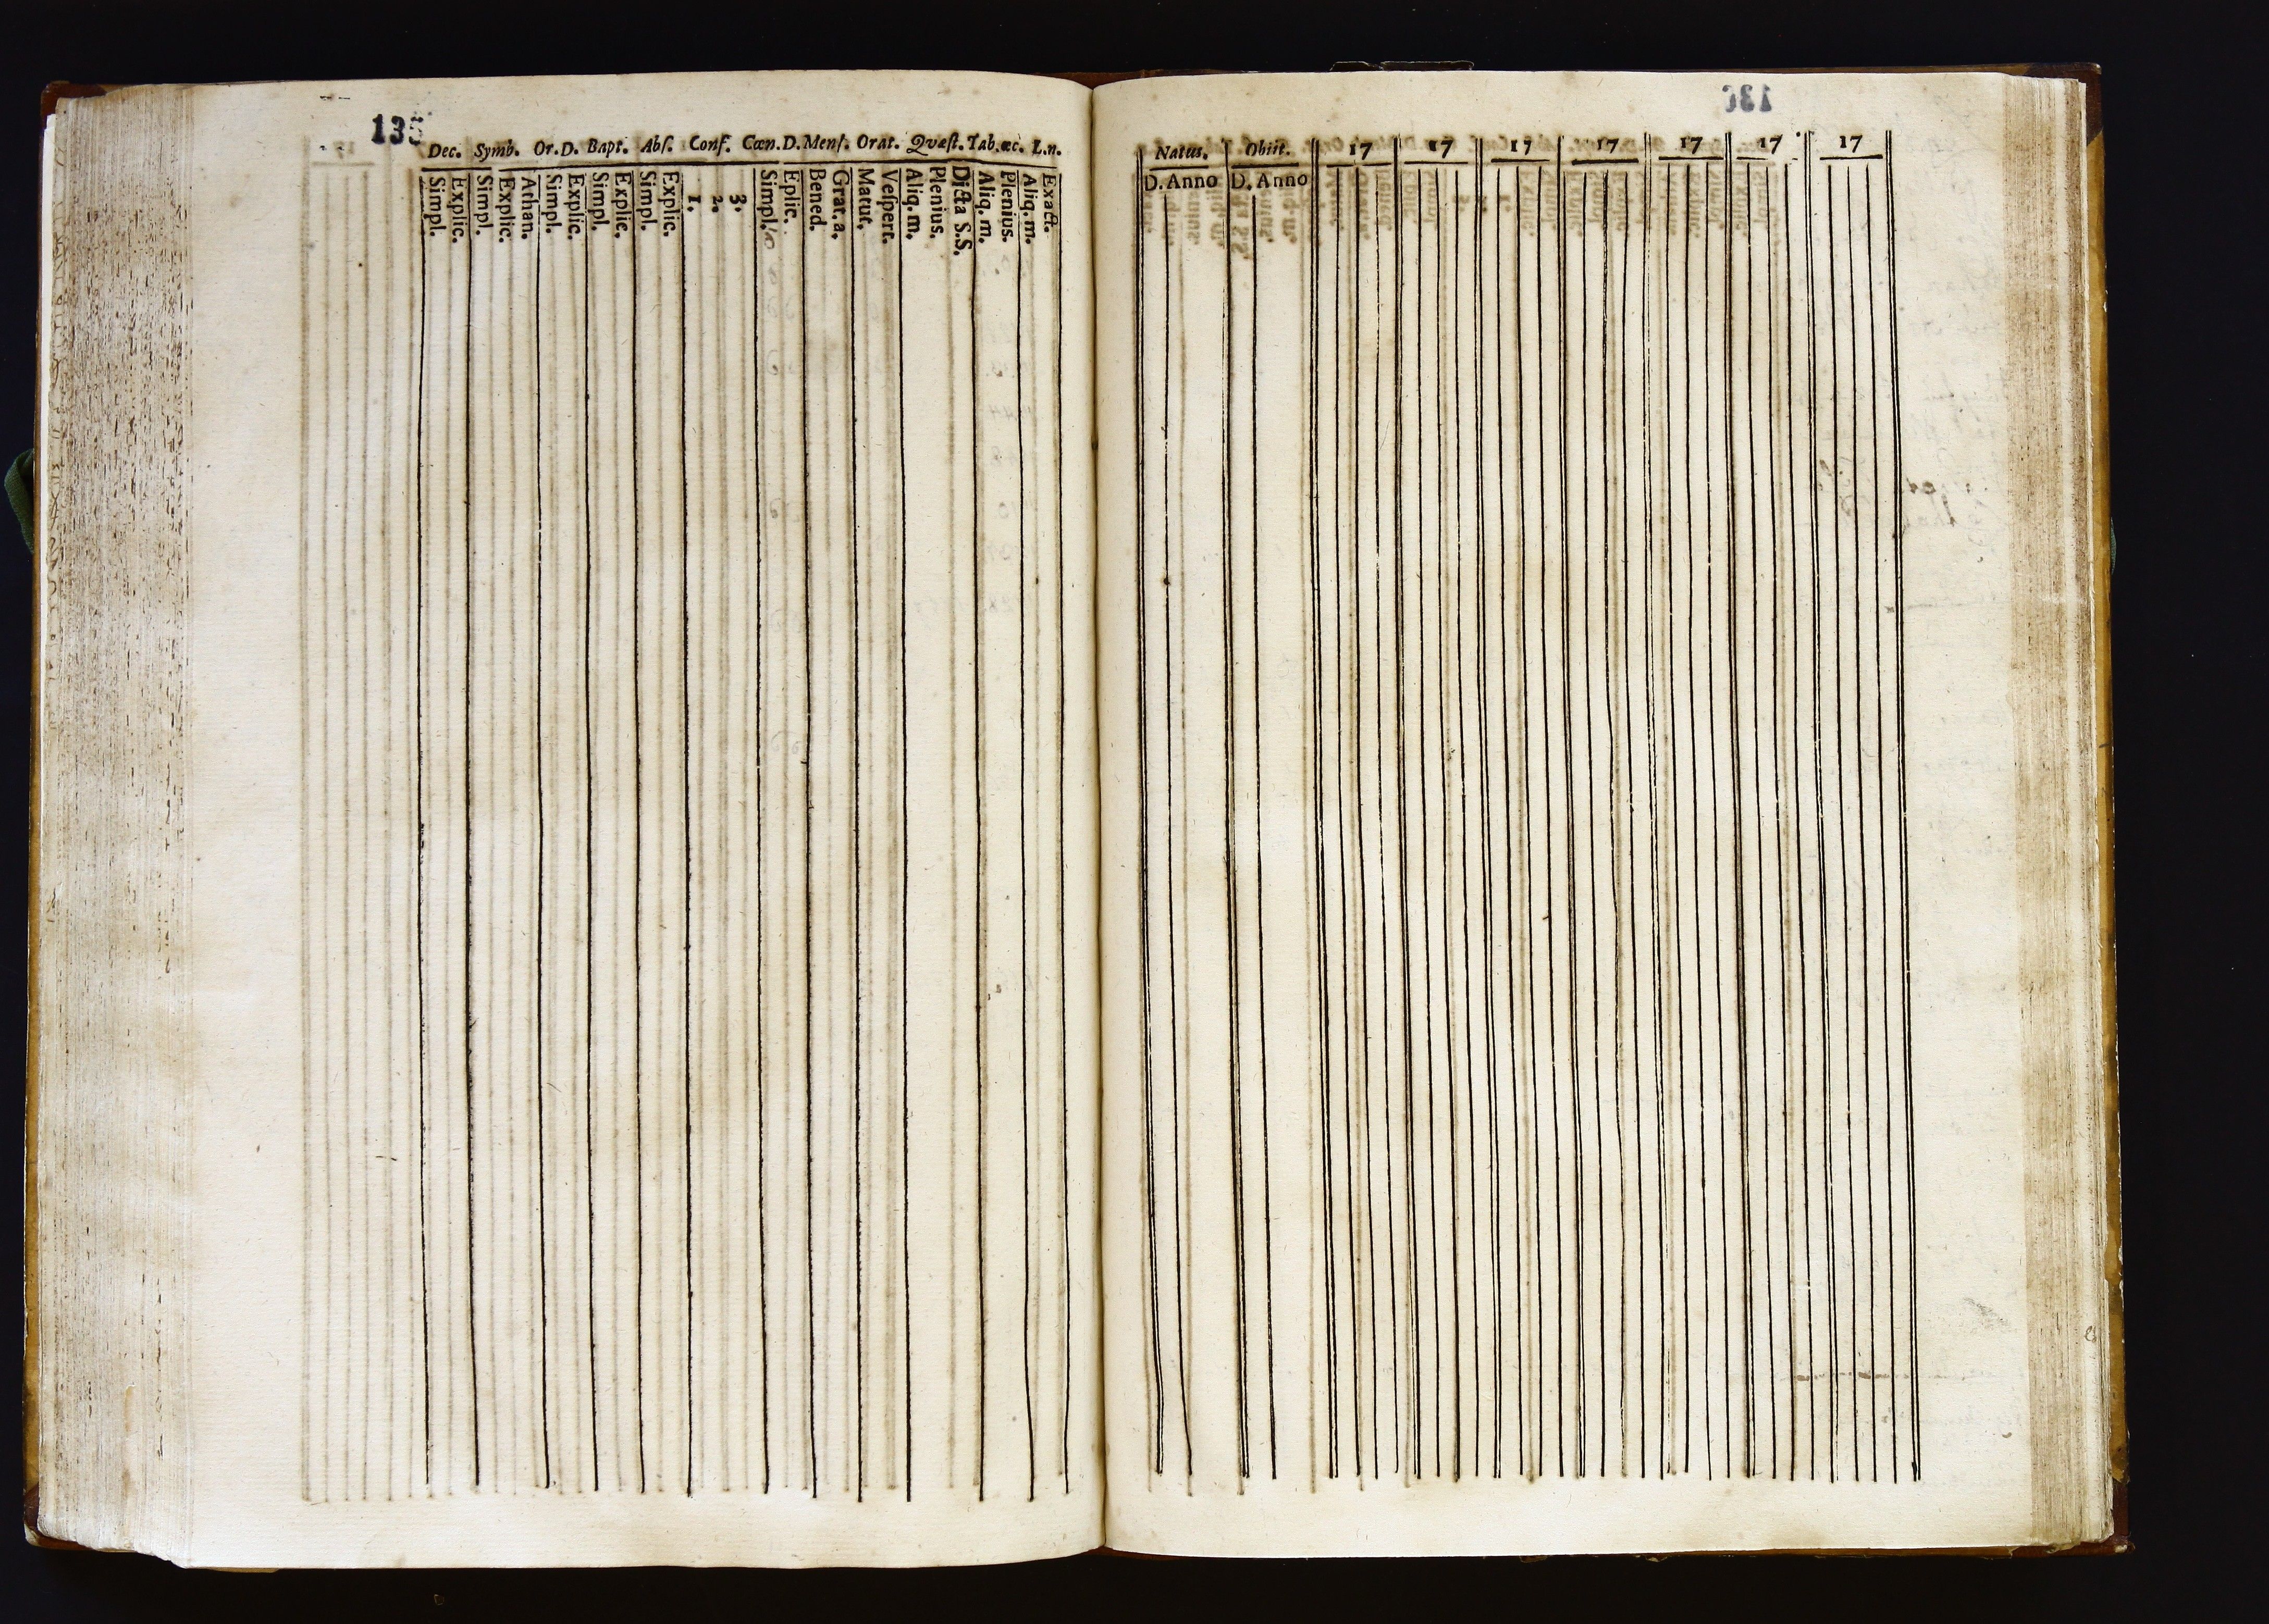 135
Dec. Symb. Or.D. Bapt. Abſ. Conf. Cœn.D. Menſ. Orat. Qvæſt. Tab.œc. L.n.
Simpl.
Explic.
Simpl.
Explic.
Athan.
Simpl.
Explic.
Simpl.
Explic.
Simpl.
Explic.
1.
2.
3.
Simpl.
Eplic.
Bened.
Grat. a.
Matut.
Veſpert.
Aliq. m.
Plenius.
Dicta S.S.
Aliq. m.
Plenius.
Aliq. m.
Exact.
Natus. Obiit. 17 17 17 17 17 17 17
D. Anno D. Anno